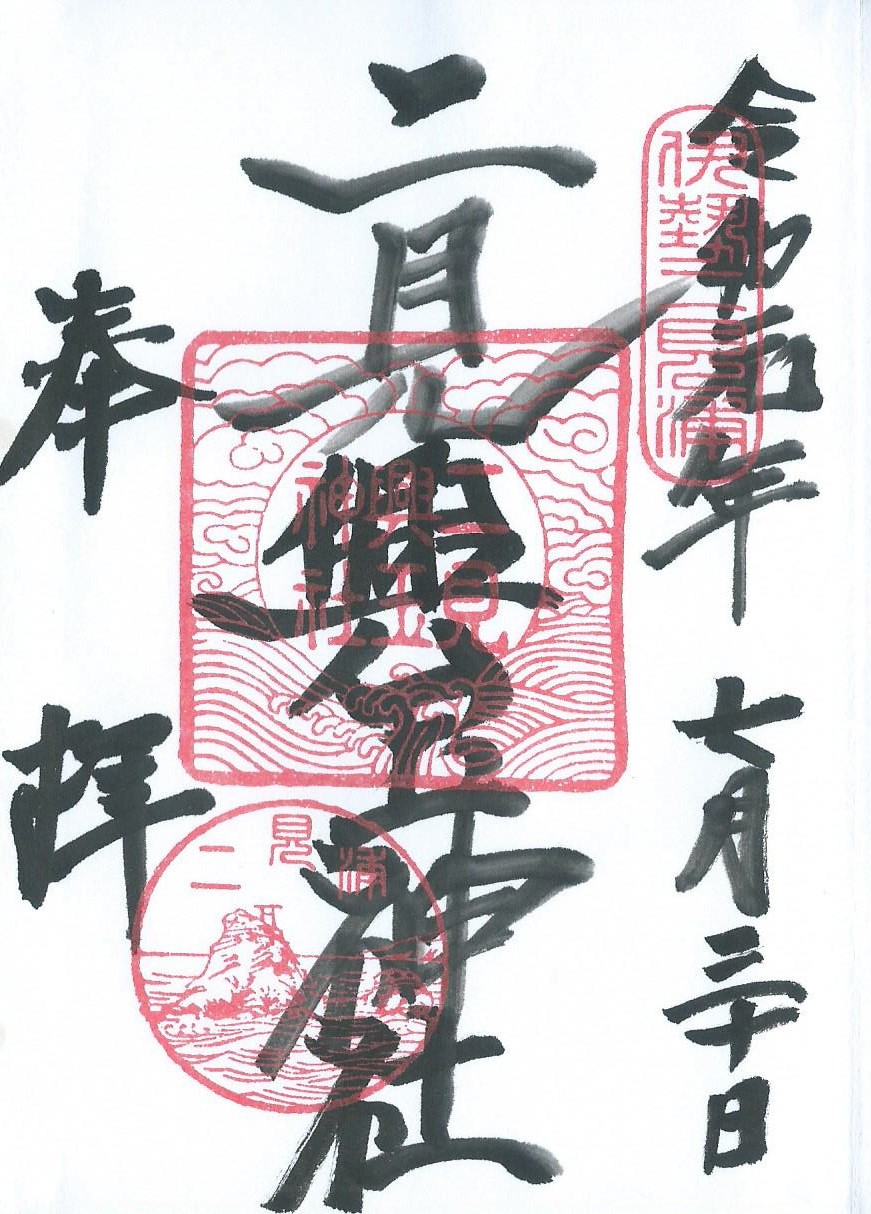 令和元年 七月三十日
伊勢二見浦
二見興玉神社
二見
興玉
神社
奉拝
二見浦